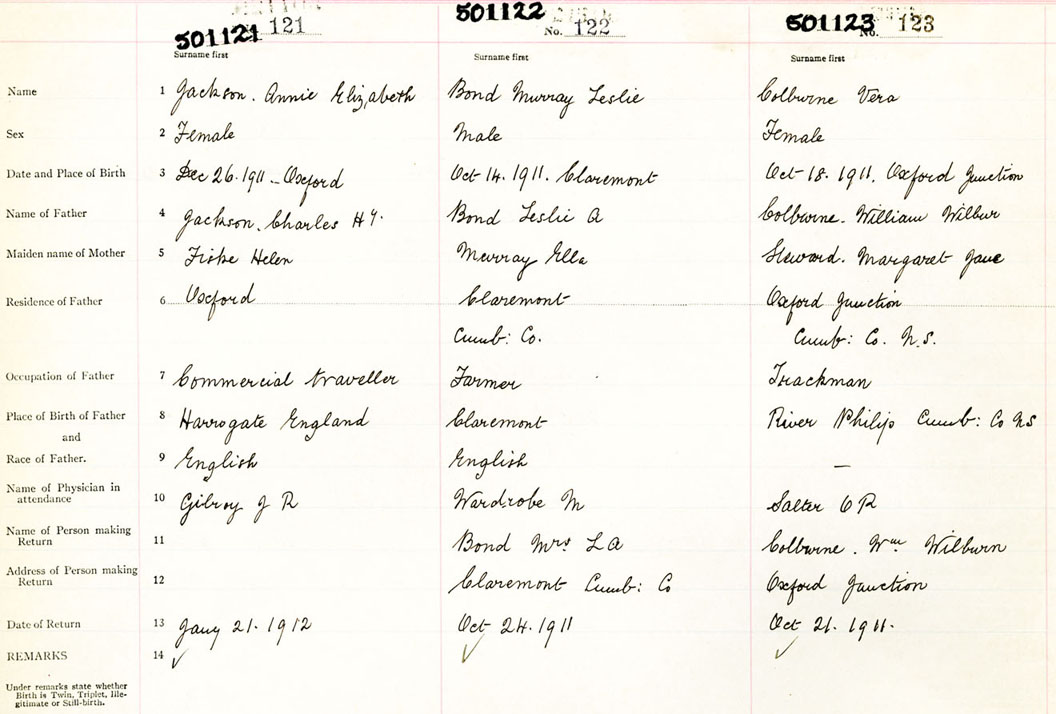 501121 121 501122 No. 122 501123 No. 123
Surname first Surname first Surname first
Name 1 Jackson. Annie Elizabeth Bond Murray Leslie Colburne Vera
Sex 2 Female Male Female
Date and Place of Birth 3 Dec 26. 1911 - Oxford Oct 14. 1911. Claremont Oct 18. 1911. Oxford Junction
Name of Father 4 Jackson. Charles Hy. Bond Leslie A Colburne. William Wilbur
Maiden name of Mother 5 Fiske Helen Murray Ella Steward. Margaret Jane
Residence of Father 6 Oxford Claremont Oxford Junction
Cumb: Co. Cumb: Co. N.S.
Occupation of Father 7 Commercial traveller Farmer Trackman
Place of Birth of Father 8 Harrogate England Claremont River Philip Cumb: Co NS
and
Race of Father. 9 English English —
Name of Physician in
attendance 10 Gilroy J R Wardrobe M Salter C R
Name of Person making
Return 11 Bond Mrs L A Colburne. Wm Wilburn
Address of Person making
Return 12 Claremont Cumb: Co Oxford Junction
Date of Return 13 Jany 21. 1912 Oct 24. 1911 Oct 21. 1911.
REMARKS 14 ✓ ✓ ✓
Under remarks state whether
Birth is Twin, Triplet, Ille-
gitimate or Still-birth.